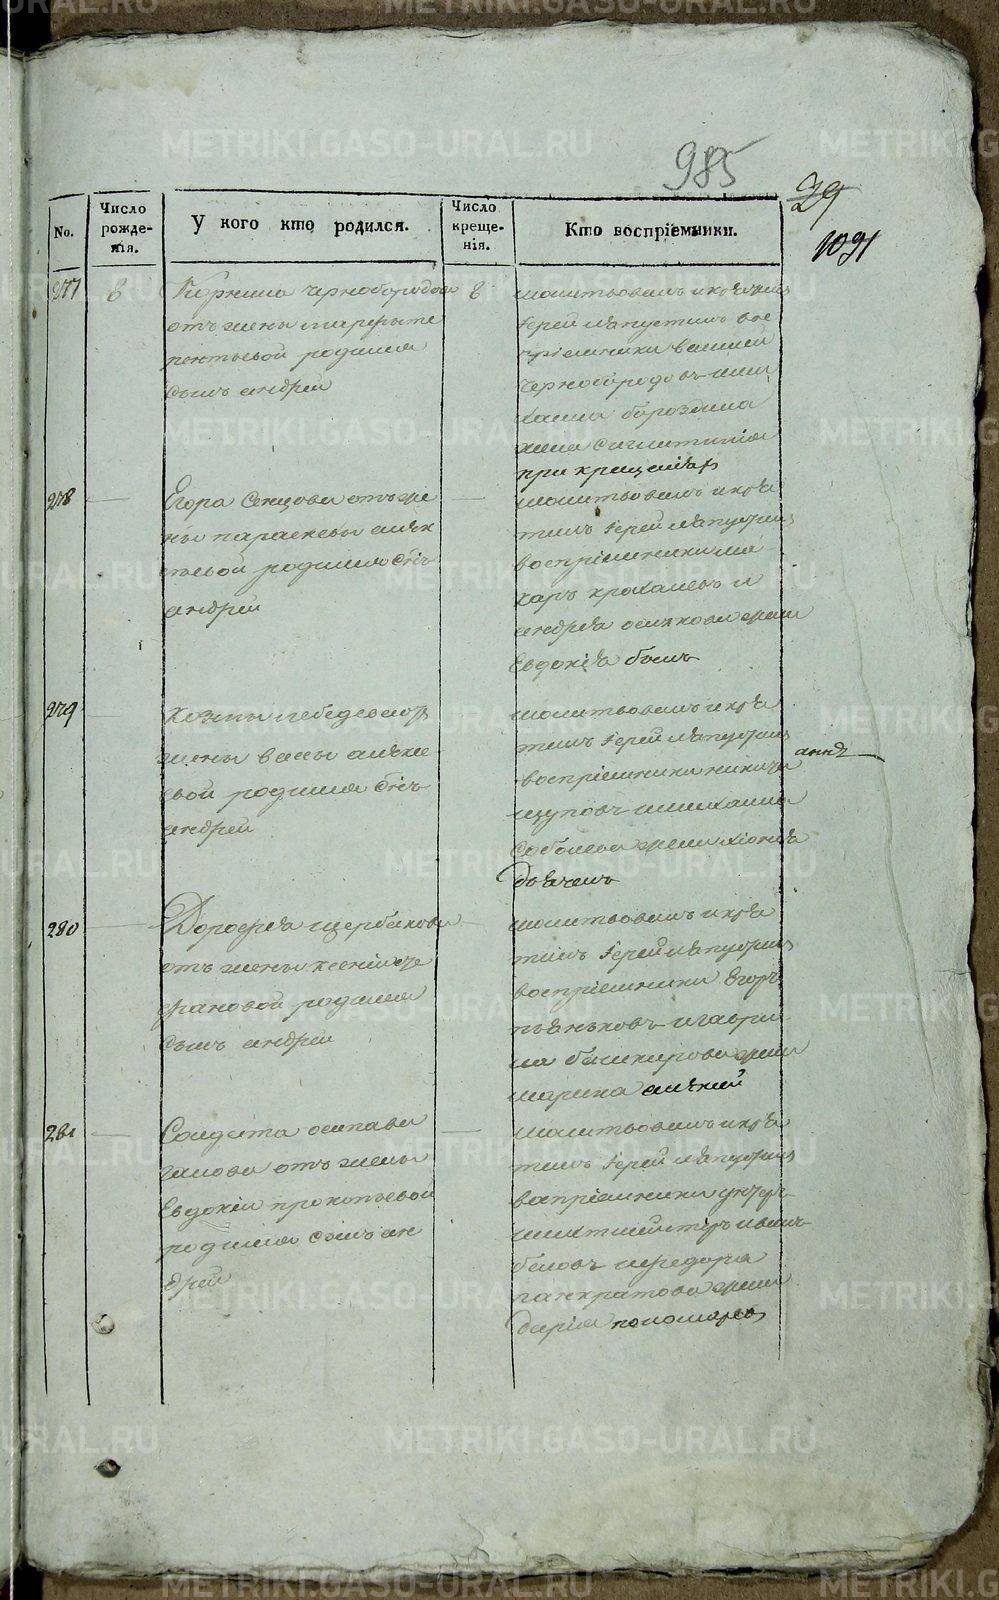 985
29
1091
No.
Число рожде-нія.
У кого кто родился.
Число креще-нія.
Кто воспріемники.
277
8
Корнила Чернобородова
отъ жены марфы те
рентьевой родился
сынъ андрей
8
молитвовалъ и крестилъ
Іерей Лапустинъ вос
пріемники василей
Чернобородовъ ми
хаила бороздина
жена
при крещеніи
278
Егора Сенцова отъ же
ны параскевы алек
евой родился снъ
андрей
молитвовалъ и кре
тилъ Іерей Лапустинъ
воспріемники ма
каръ крохалевъ и
андрея осипова жена
Евдокія былъ
279
Козмы лебедева отъ
жены вассы алексе
евой родился снъ
андрей
молитвовалъ и кре
тилъ Іерей Лапустинъ
воспріемники никита
щуповъ и михаила
соболева жена
дьячекъ
280
Дорофея щербакова
отъ жены ксеніи сте
фановой родился
сынъ андрей
молитвовалъ и кре
тилъ Іерей Лапустинъ
воспріемники Егоръ
пьянковъ и гаври
ла башкирова жена
марина алексей
281
Солдата осипа ва
отъ жены
Евдокіи прокопьевой
родился сынъ ан
дрей
молитвовалъ и кре
тилъ Іерей Лапустинъ
воспріемники унтеръ
иванъ
беловъ и федора
панкратова жена
дарія пономаревъ
METRIKI.GASO-URAL.RU